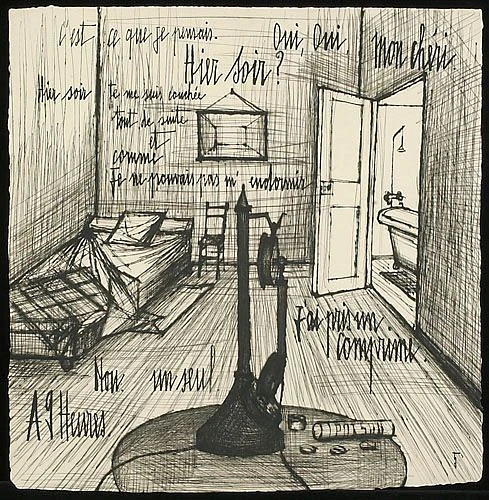 C'est ce que je pensais.
Oui Oui mon chéri
Hier Soir ?
Hier soir je me suis couchée
tout de suite
et
comme
Je ne pouvais pas m'endormir
J'ai pris un
comprimé.
Non un seul
A 9 Heures